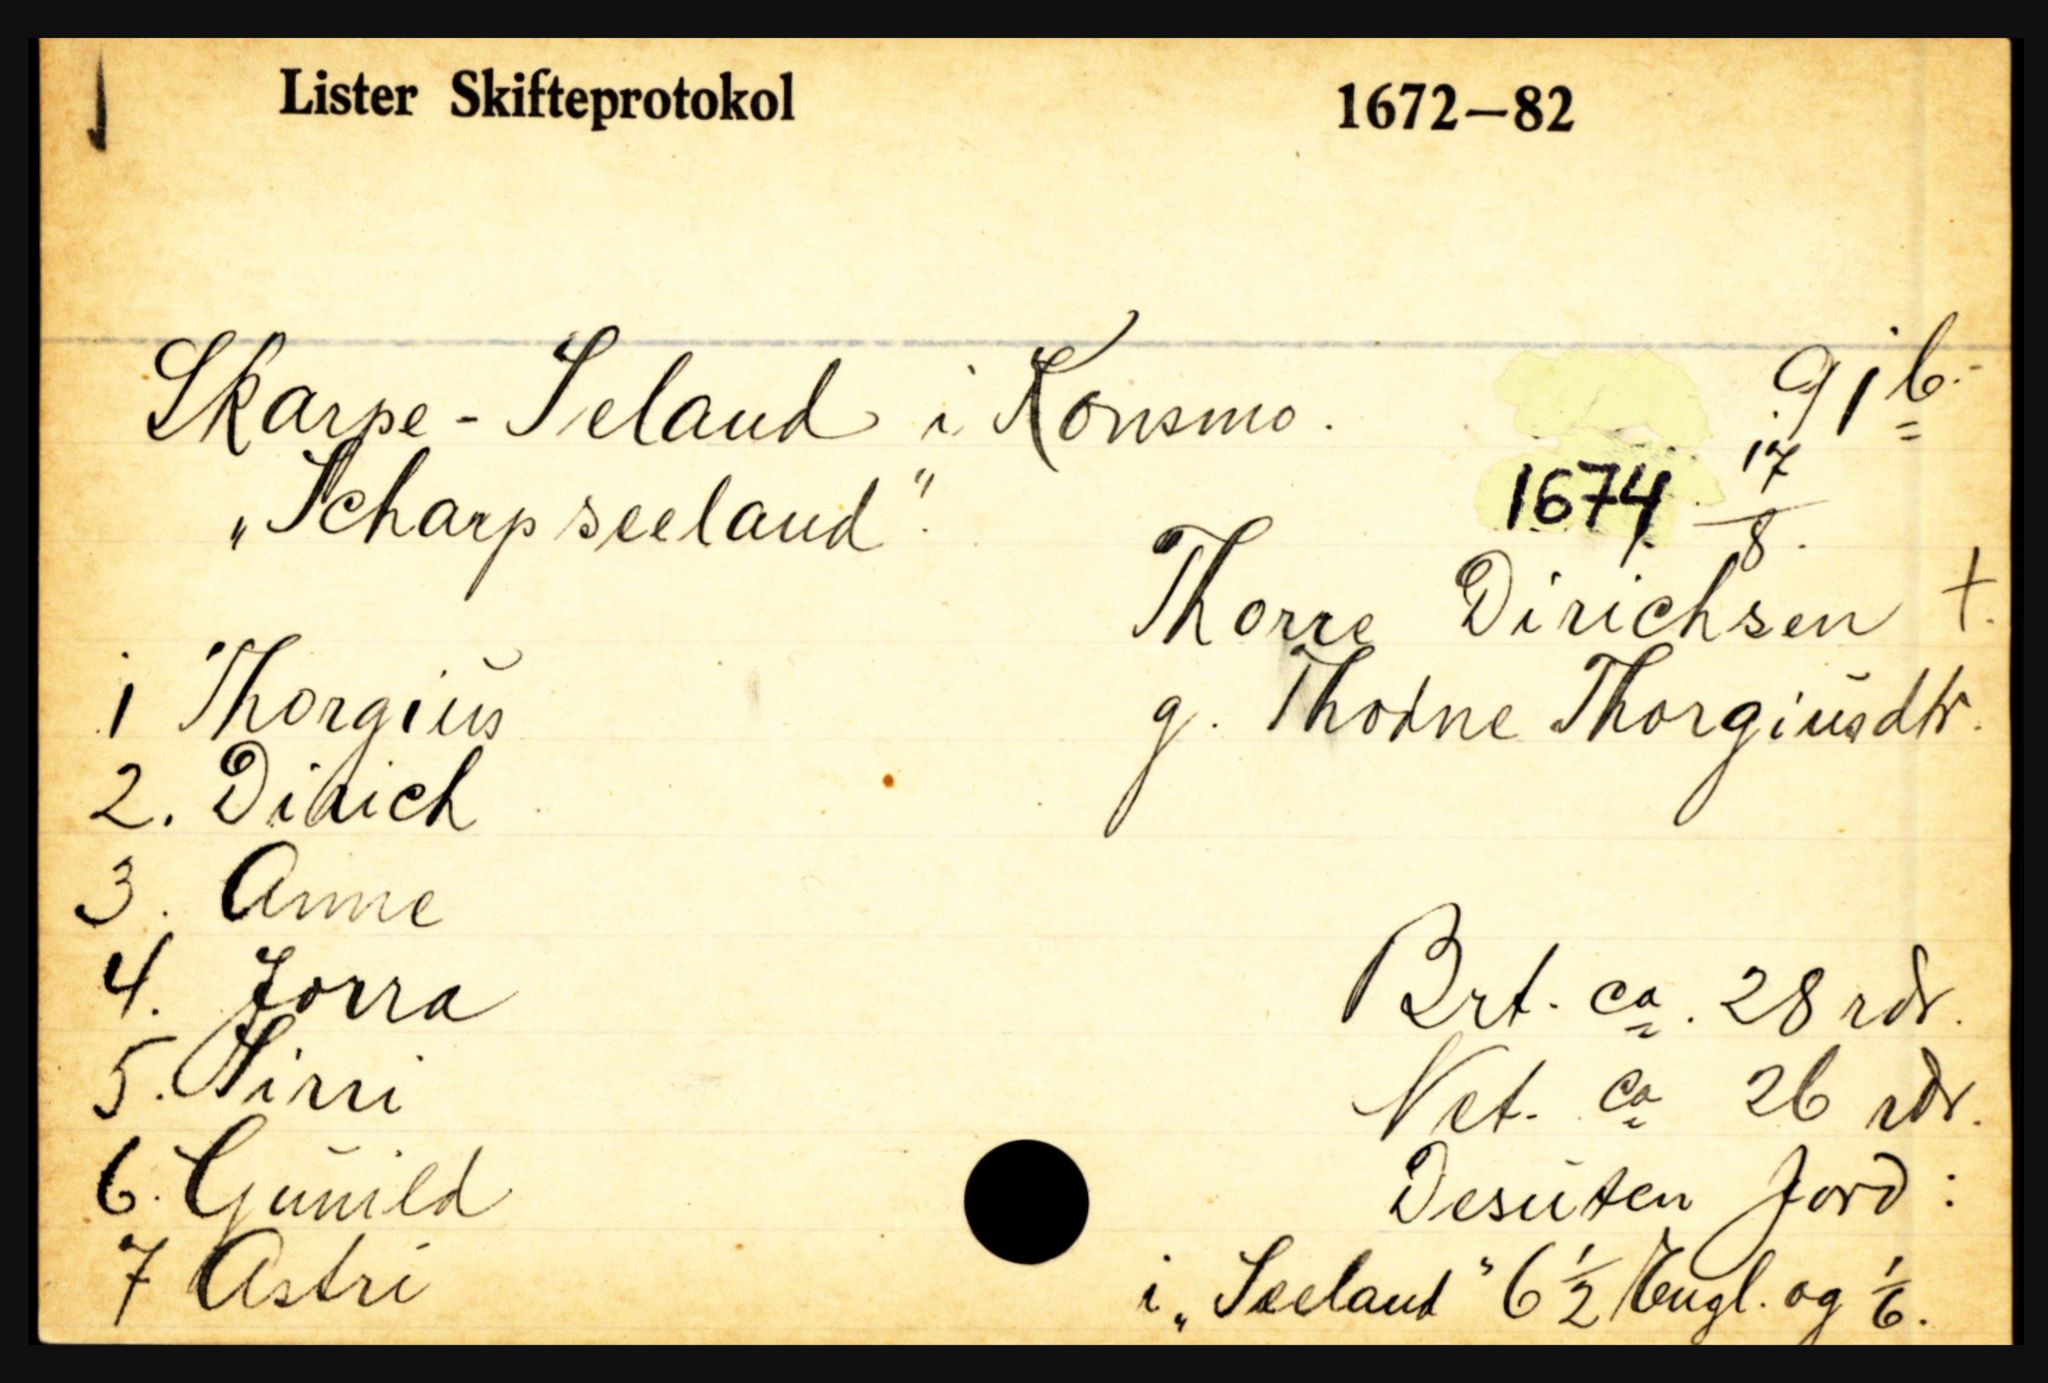 Lister Skifteprotokol 1672-82
Skarpe-Seland i Konsmo. 91b.-
"Scharpseeland". 1674 17/8.
Thorre Dirichsen +.
1 Thorgius g. Thorne Thorgiusdtr.
2. Dirich
3. Anne
4. Jorra Brt. ca. 28 rdr.
5. Sirri Net. ca 26 rdr.
6. Gunild Desuten Jord:
7 Astri i "Seeland" 6 1/2 Engl. og 1/6.